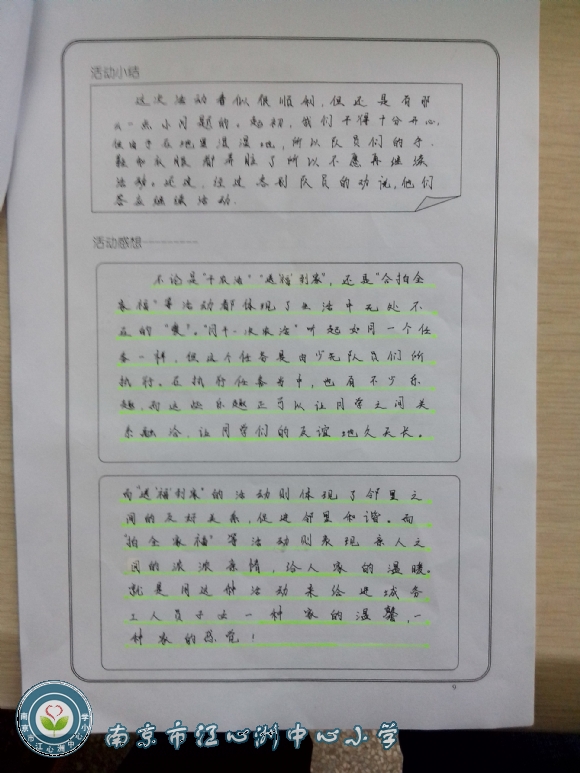 活动小结
这次活动看似很顺利,但还是有那
么一点小问题的。起初,我们干得十分开心,
但由于在地里湿湿地,所以队员们的手
鞋和衣服都弄脏了所以不愿再继续
活动。还这,经过志别队员的劝说,他们
答应继续活动.
活动感想
不论是"干农活""送'福'到家",还是"合拍全
家福"等活动都体现了生活中无处不
在的"爱"。"同干一次农活"听起如同一个任
务一样,但这个任务是由少先队员们所
执行。在执行任务当中,也有不少乐
趣,而这些乐趣正可以让同学之间关
系融洽,让同学们的友谊地久天长。
而"送'福'到家"的活动则体现了邻里之
间的友好关系,促进邻里和谐。而
"拍全家福"等活动则表现亲人之
间的浓浓亲情,给人家的温暖。
就是用这种活动来给进城务
工人员子女一种家的温馨,一
种家的感觉!
9
南京市江心洲中心小学